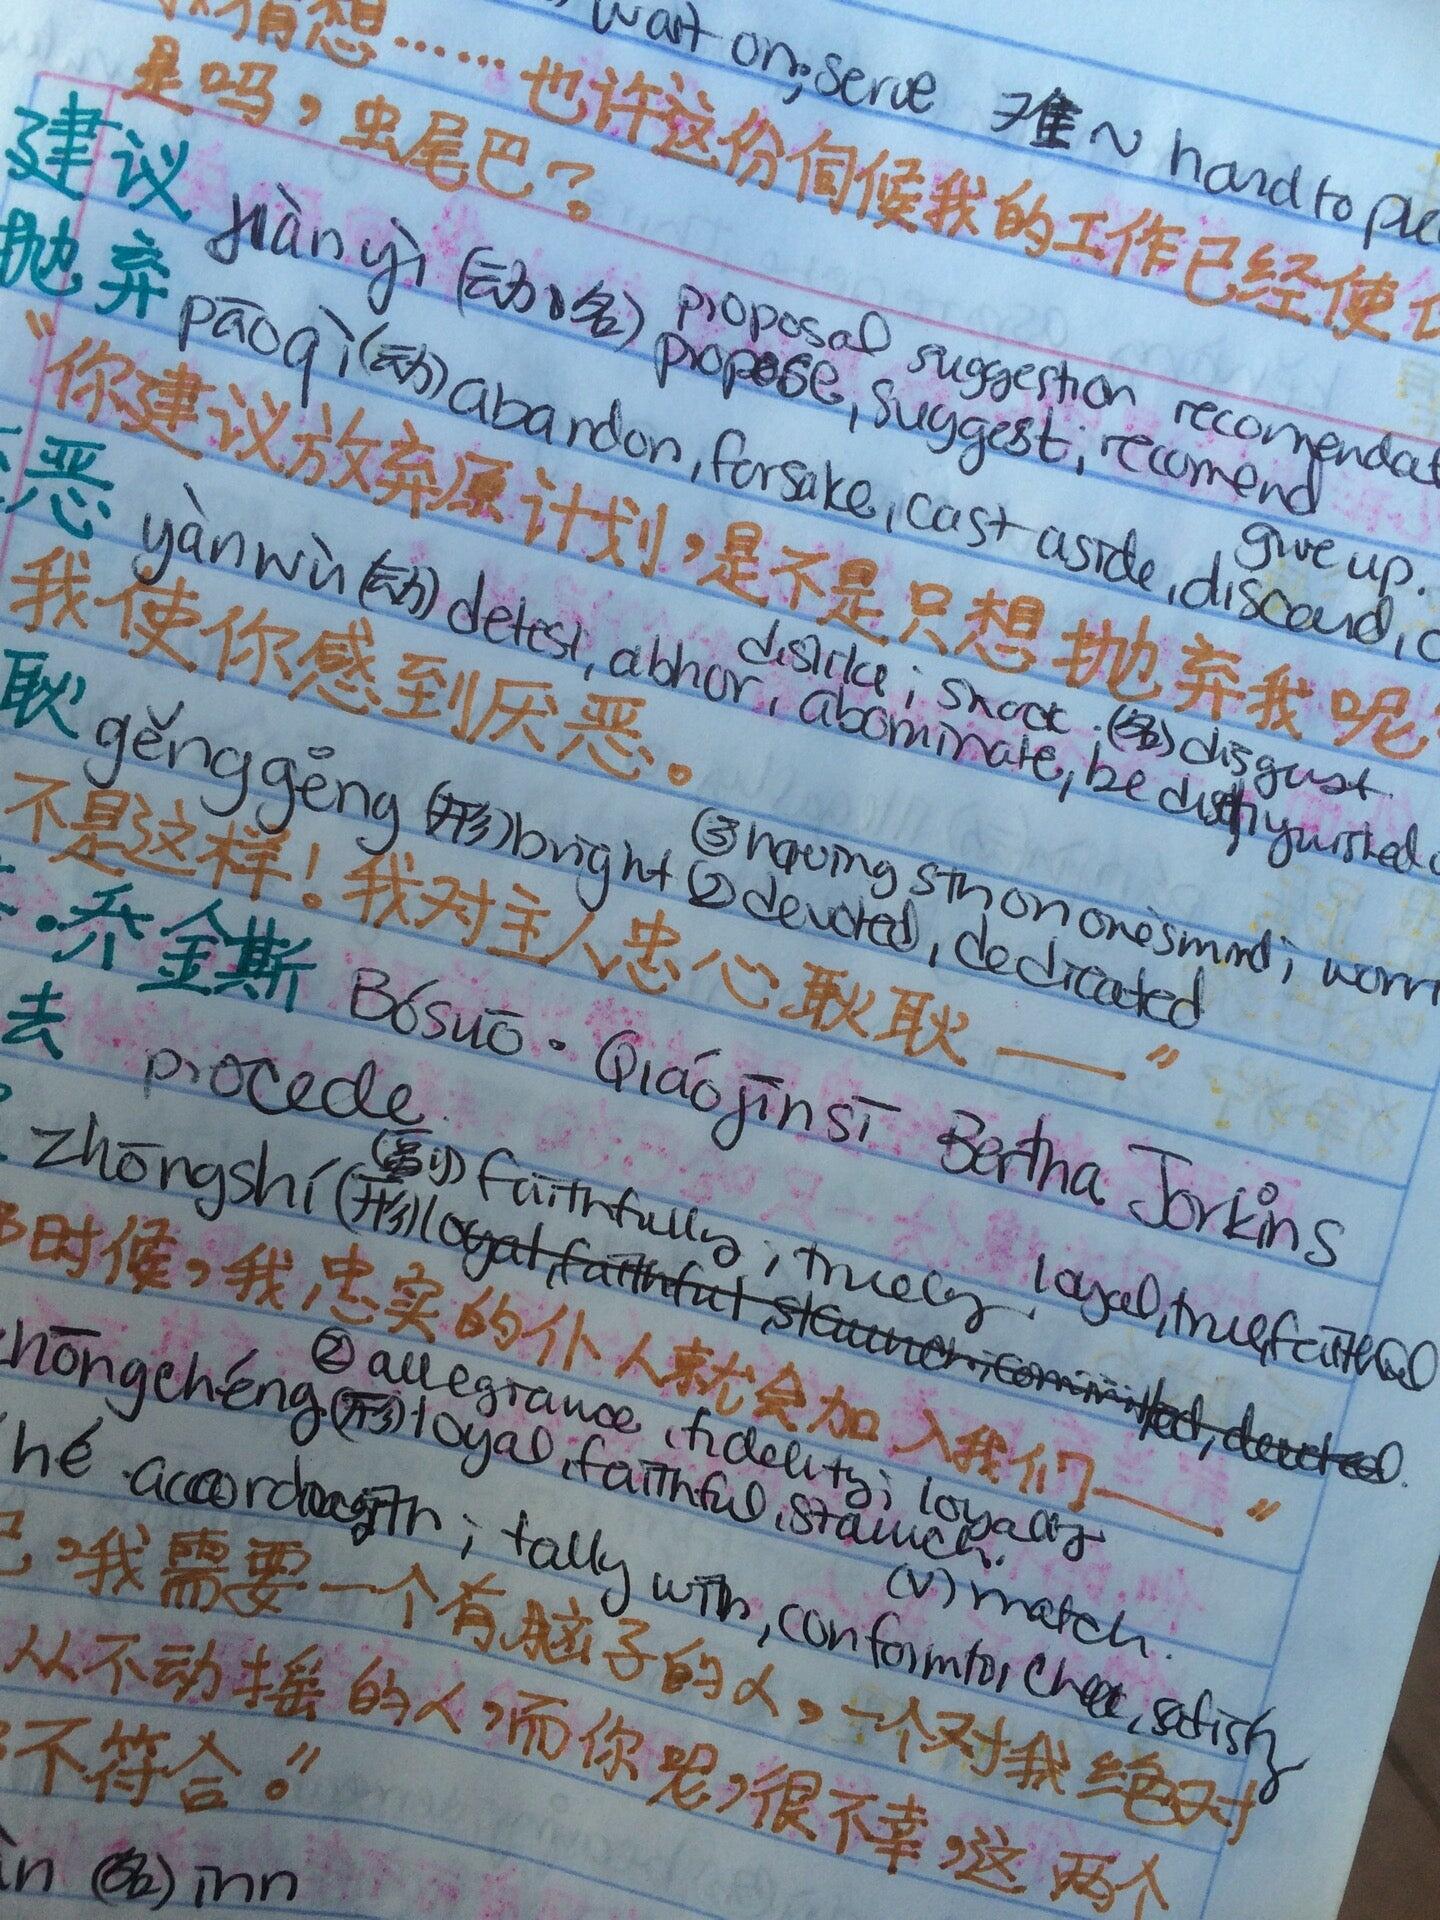 wait on; serve 难~ hard to
猜想……也许这份伺候我的工作已经使
是吗，虫尾巴？
建议 jiàn yì (动、名) proposal suggestion
propose, suggest; recomend
抛弃 pāoqì (动) abandon, forsake, cast aside, discard,
give up.
“你建议放弃原计划，是不是只想抛弃我呢
恶 yànwù (动) detest, abhor, abominate, be
dislike; (名) disgust
我使你感到厌恶。
耿 gěnggěng (形) bright ② devoted, dedicated
③ having sth on one's mind;
不是这样！我对主人忠心耿耿——”
·乔金斯 Bósuō · Qiáojīnsī Bertha Jorkins
去 procede.
zhōngshí (副) faithfully; truely. loyal, true, faithful
(形) loyal, faithful, staunch, committed, devoted.
时候，我忠实的仆人就会加入我们——”
hōngchéng (形) loyal, faithful, staunch.
② allegiance, fidelity; loyalty
hé accord with; tally with, conform to, satisfy
(v) match.
，我需要一个有脑子的人，一个对我绝对
从不动摇的人，而你呢，很不幸，这两个
不符合。”
(名) inn